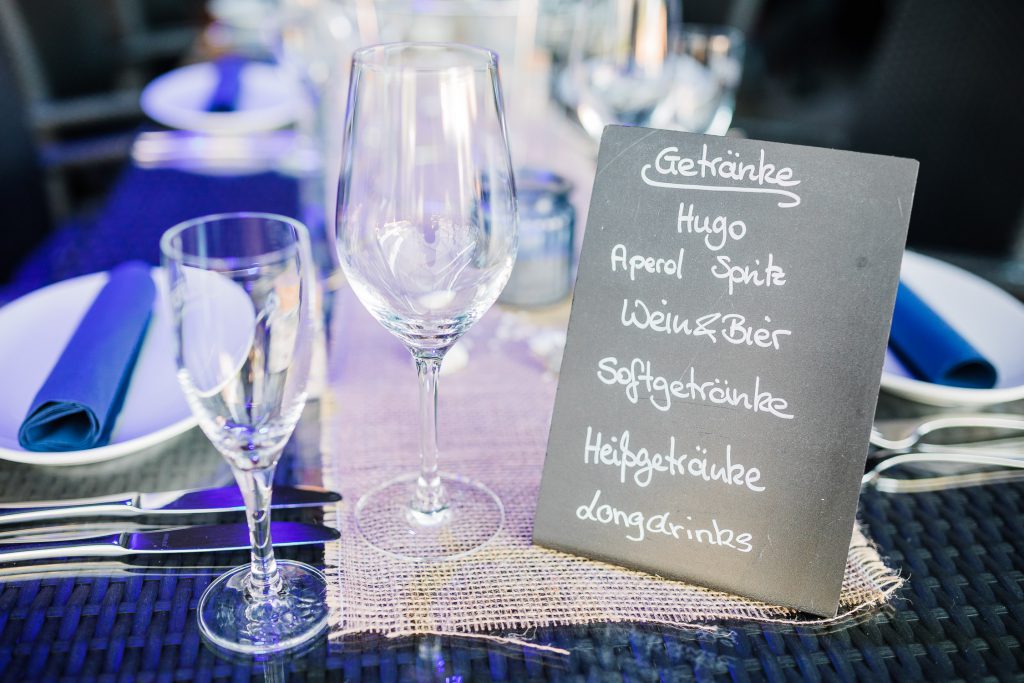 Getränke
Hugo
Aperol Spritz
Wein & Bier
Softgetränke
Heißgetränke
Longdrinks